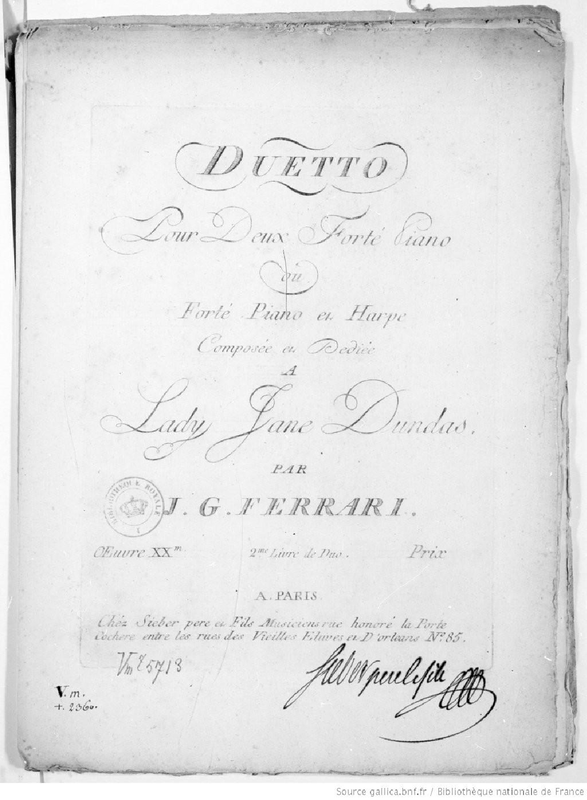 DUETTO
Pour Deux Forté Piano
ou
Forté Piano et Harpe
Composée et Dediée
A
Lady Jane Dundas.
PAR
J. G. FERRARI.
BIBLIOTHEQUE ROYALE
Œuvre XXm 2me Livre de Duo. Prix
A. PARIS
Chéz Sieber pere et Fils Musiciens rue honoré la Porte
Cochere entre les rues des Vieilles Etuves et D'orleans No. 85.
Vm 5718
Sieber pere et fils
V. m.
+. 236o.
Source gallica.bnf.fr / Bibliothèque nationale de France